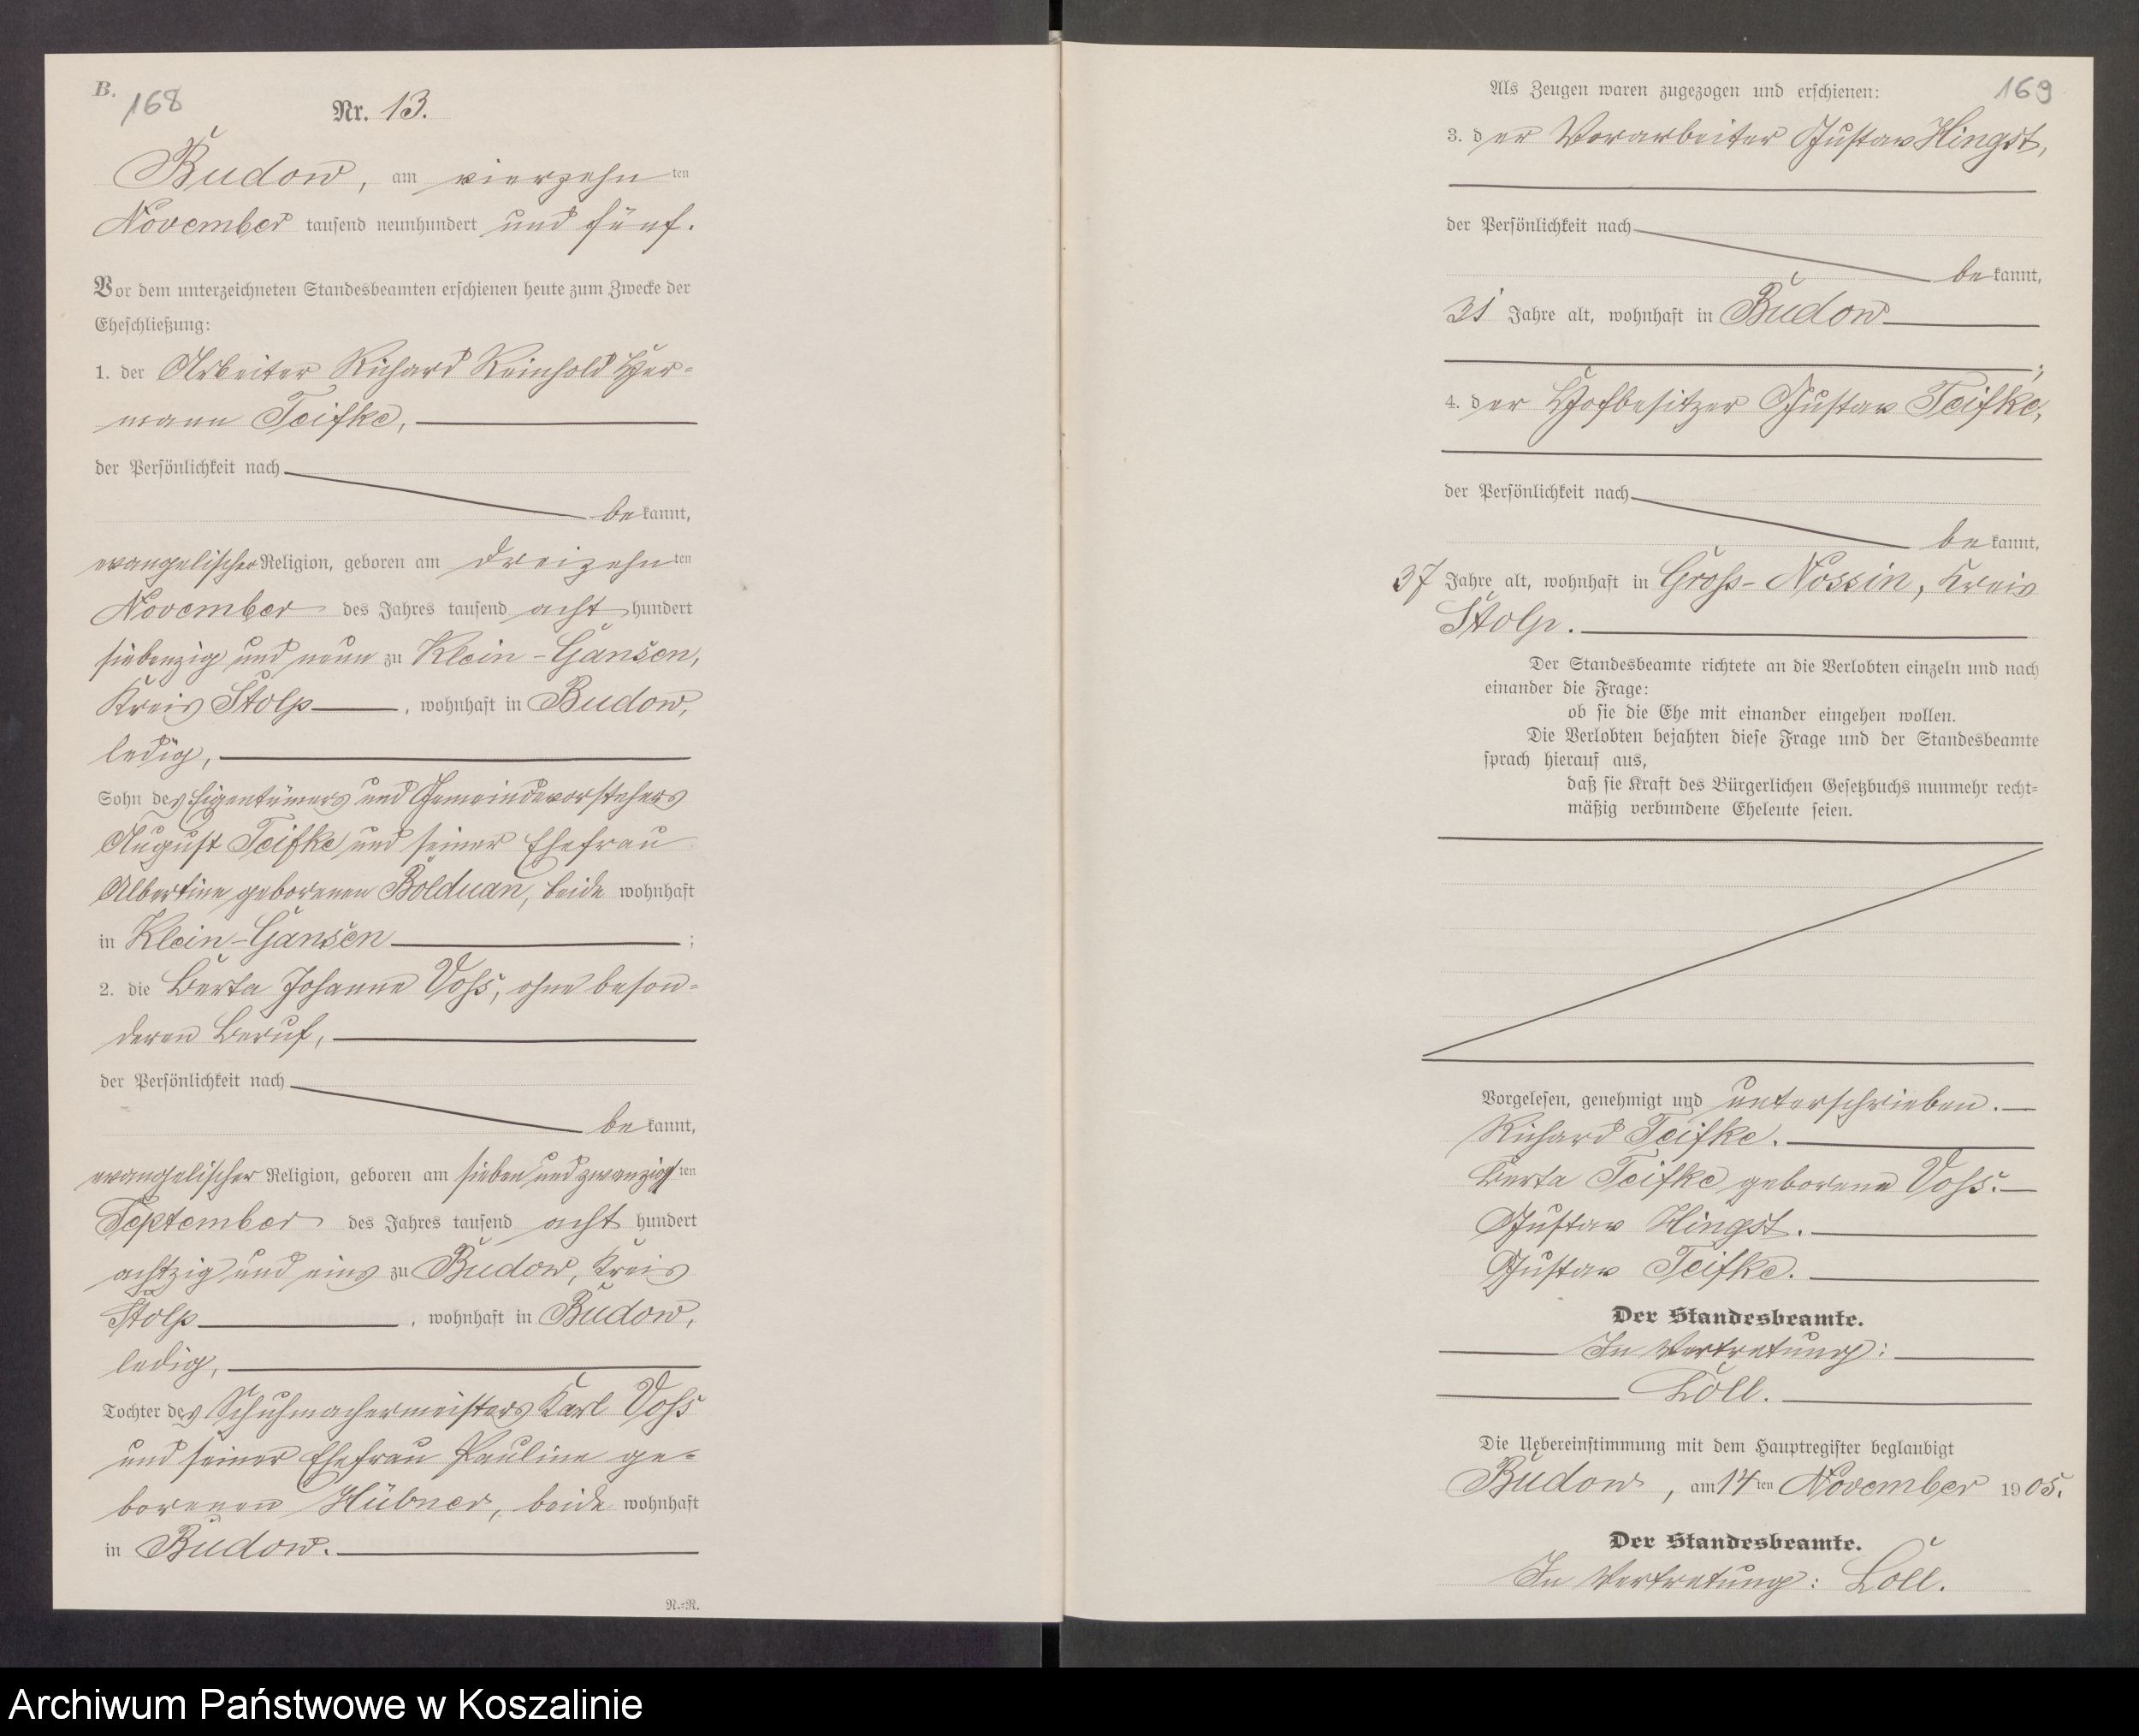 B.
168
Nr. 13.
Budow, am vierzehn ten
November tausend neunhundert und fünf.
Vor dem unterzeichneten Standesbeamten erschienen heute zum Zwecke der
Eheschließung:
1. der Arbeiter Richard Reinhold Her=
mann Teifke,
der Persönlichkeit nach
be kannt,
evangelischer Religion, geboren am dreizehn ten
November des Jahres tausend acht hundert
siebenzig und neun zu Klein-Gansen,
Kreis Stolp, wohnhaft in Budow,
ledig,
Sohn des Eigentümers und Gemeindevorstehers
August Teifke und seiner Ehefrau
Albertine geborenen Bolduan, beide wohnhaft
in Klein-Gansen ;
2. die Berta Johanne Voß, ohne beson=
deren Beruf,
der Persönlichkeit nach
be kannt,
evangelischer Religion, geboren am sieben und zwanzigsten
September des Jahres tausend acht hundert
achtzig und eins zu Budow, Kreis
Stolp, wohnhaft in Budow,
ledig,
Tochter des Schuhmachermeisters Karl Voß
und seiner Ehefrau Pauline ge=
borenen Hübner, beide wohnhaft
in Budow.
N.=R.
169
Als Zeugen waren zugezogen und erschienen:
3. der Vorarbeiter Gustav Hingst,
der Persönlichkeit nach
be kannt,
Jahre alt, wohnhaft in Budow
;
4. der Hofbesitzer Gustav Teifke,
der Persönlichkeit nach
be kannt,
37 Jahre alt, wohnhaft in Groß-Nossin, Kreis
Stolp.
Der Standesbeamte richtete an die Verlobten einzeln und nach
einander die Frage:
ob sie die Ehe mit einander eingehen wollen.
Die Verlobten bejahten diese Frage und der Standesbeamte
sprach hierauf aus,
daß sie Kraft des Bürgerlichen Gesetzbuchs nunmehr recht=
mäßig verbundene Eheleute seien.
Vorgelesen, genehmigt und unterschrieben.
Richard Teifke.
Berta Teifke geborene Voß.
Gustav Hingst.
Gustav Teifke.
Der Standesbeamte.
In Vertretung:
Löll.
Die Uebereinstimmung mit dem Hauptregister beglaubigt
Budow, am 14 ten November 1905.
Der Standesbeamte.
In Vertretung: Löll.
Archiwum Państwowe w Koszalinie